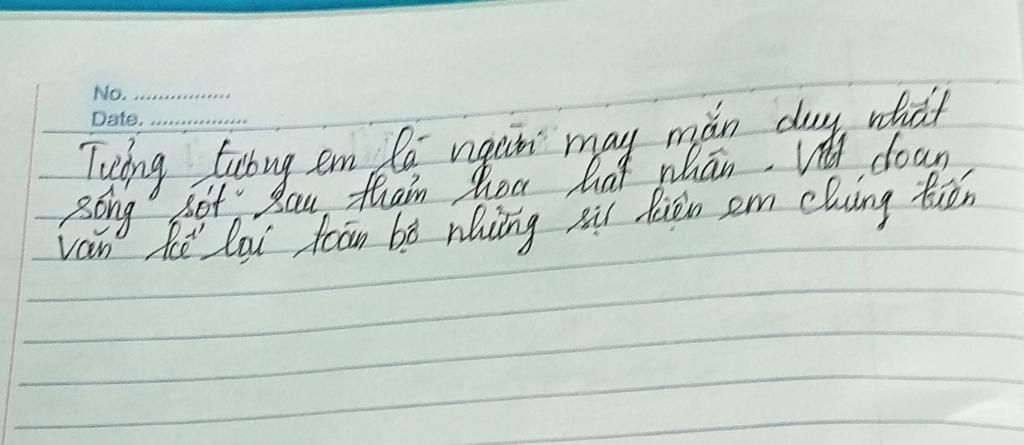 No. ................
Date. ................
Tưởng tượng em là người may mắn duy nhất
sống sót sau thảm họa hạt nhân. Viết đoạn
văn kể lại toàn bộ những sự kiện em chứng kiến